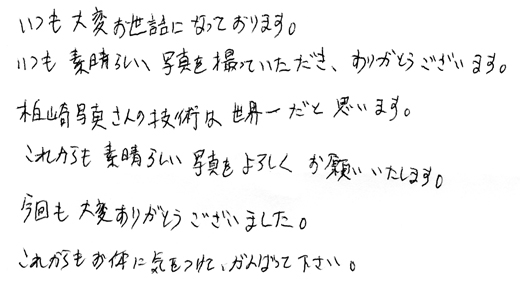 いつも大変お世話になっております。
いつも素晴らしい写真を撮っていただき、ありがとうございます。
柏崎写真さんの技術は世界一だと思います。
これからも素晴らしい写真をよろしくお願いいたします。
今回も大変ありがとうございました。
これからもお体に気をつけて、がんばって下さい。